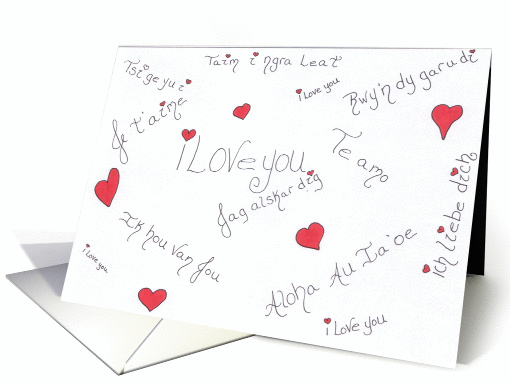 Taim i ngra Leat
Tsi ge yu i
i love you
Rwy'n dy garu di
Je t'aime
I Love you
Te amo
Jag alskar dig
Ich liebe dich
Ik hou van Jou
i love you
Aloha Au Ia 'oe
i Love you